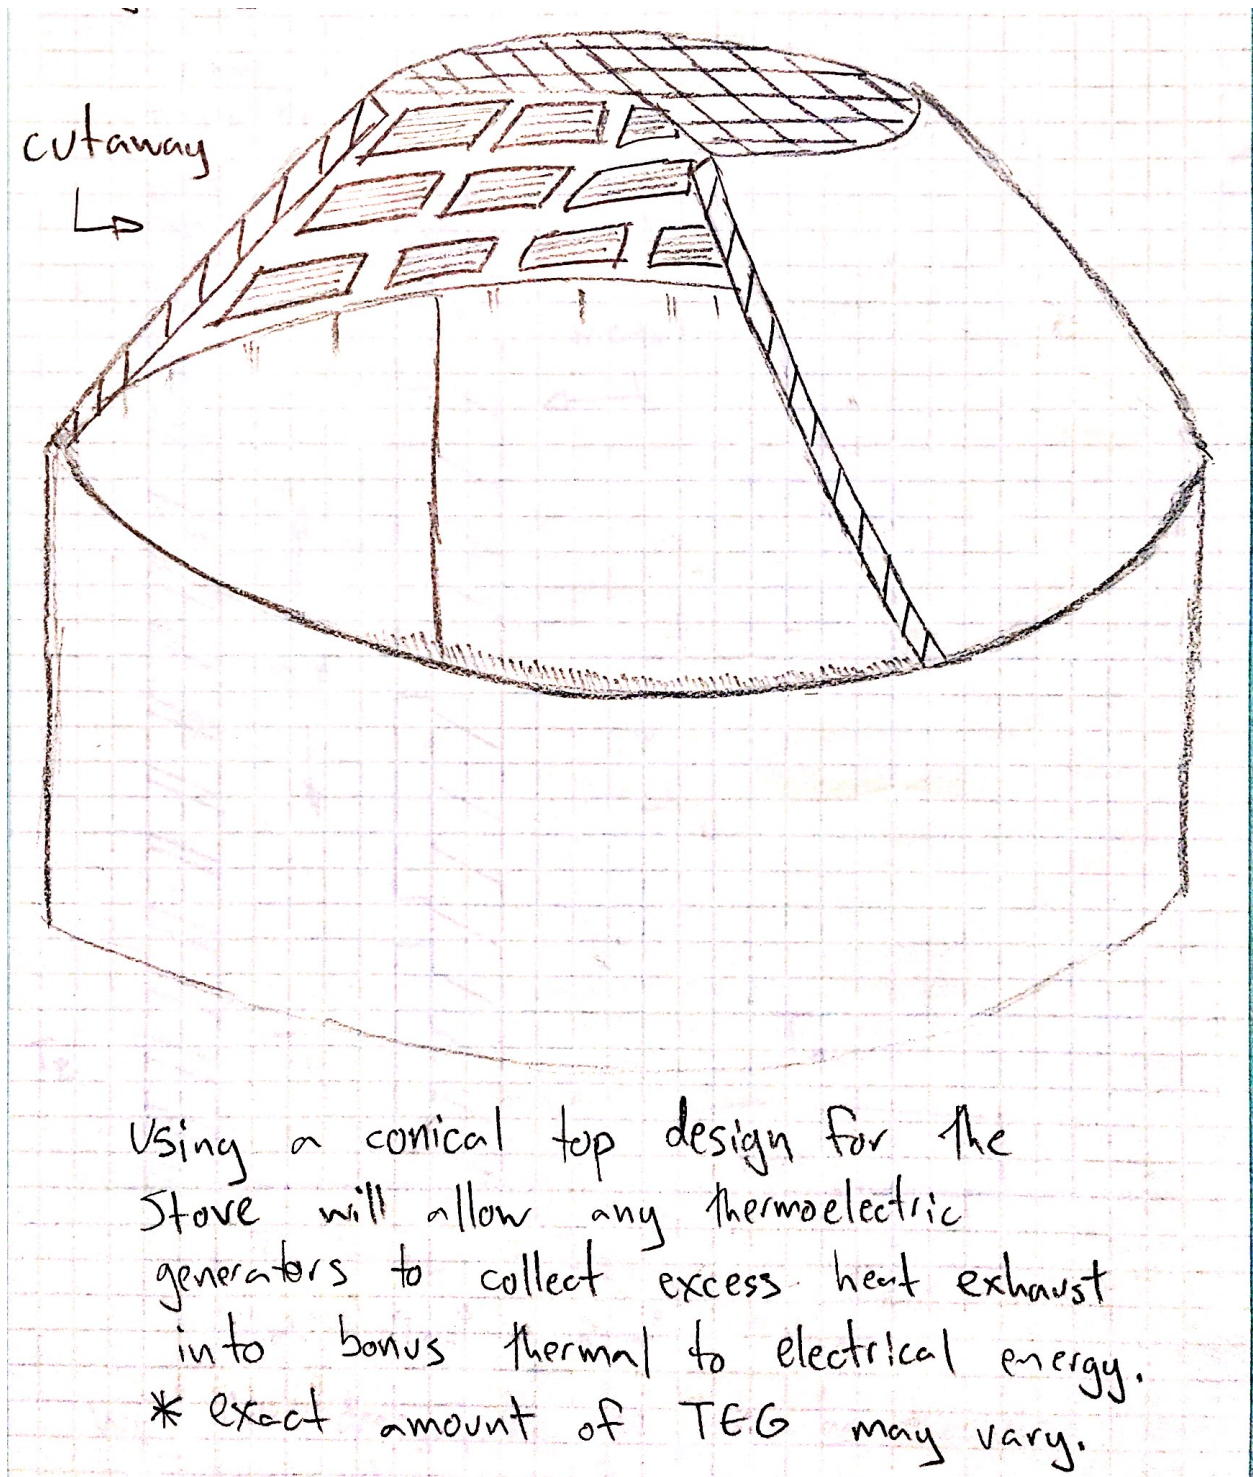 cutaway
Using a conical top design for the
stove will allow any thermoelectric
generators to collect excess heat exhaust
into bonus thermal to electrical energy.
* exact amount of TEG may vary.